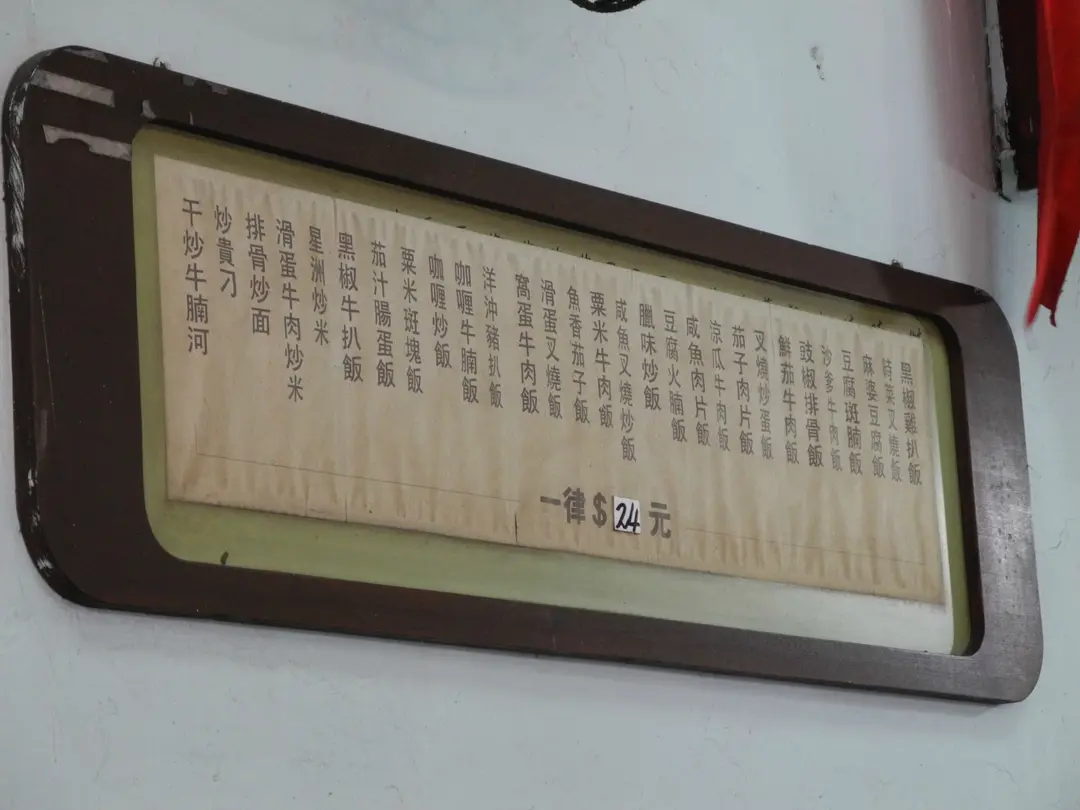 黑椒雞扒飯
時菜叉燒飯
麻婆豆腐飯
豆腐斑腩飯
沙爹牛肉飯
豉椒排骨飯
鮮茄牛肉飯
叉燒炒蛋飯
茄子肉片飯
涼瓜牛肉飯
咸魚肉片飯
豆腐火腩飯
臘味炒飯
咸魚叉燒炒飯
粟米牛肉飯
魚香茄子飯
滑蛋叉燒飯
窩蛋牛肉飯
洋沖豬扒飯
咖喱牛腩飯
咖喱炒飯
粟米斑塊飯
茄汁腸蛋飯
黑椒牛扒飯
星洲炒米
滑蛋牛肉炒米
排骨炒面
炒貴刁
干炒牛腩河
一律$24元